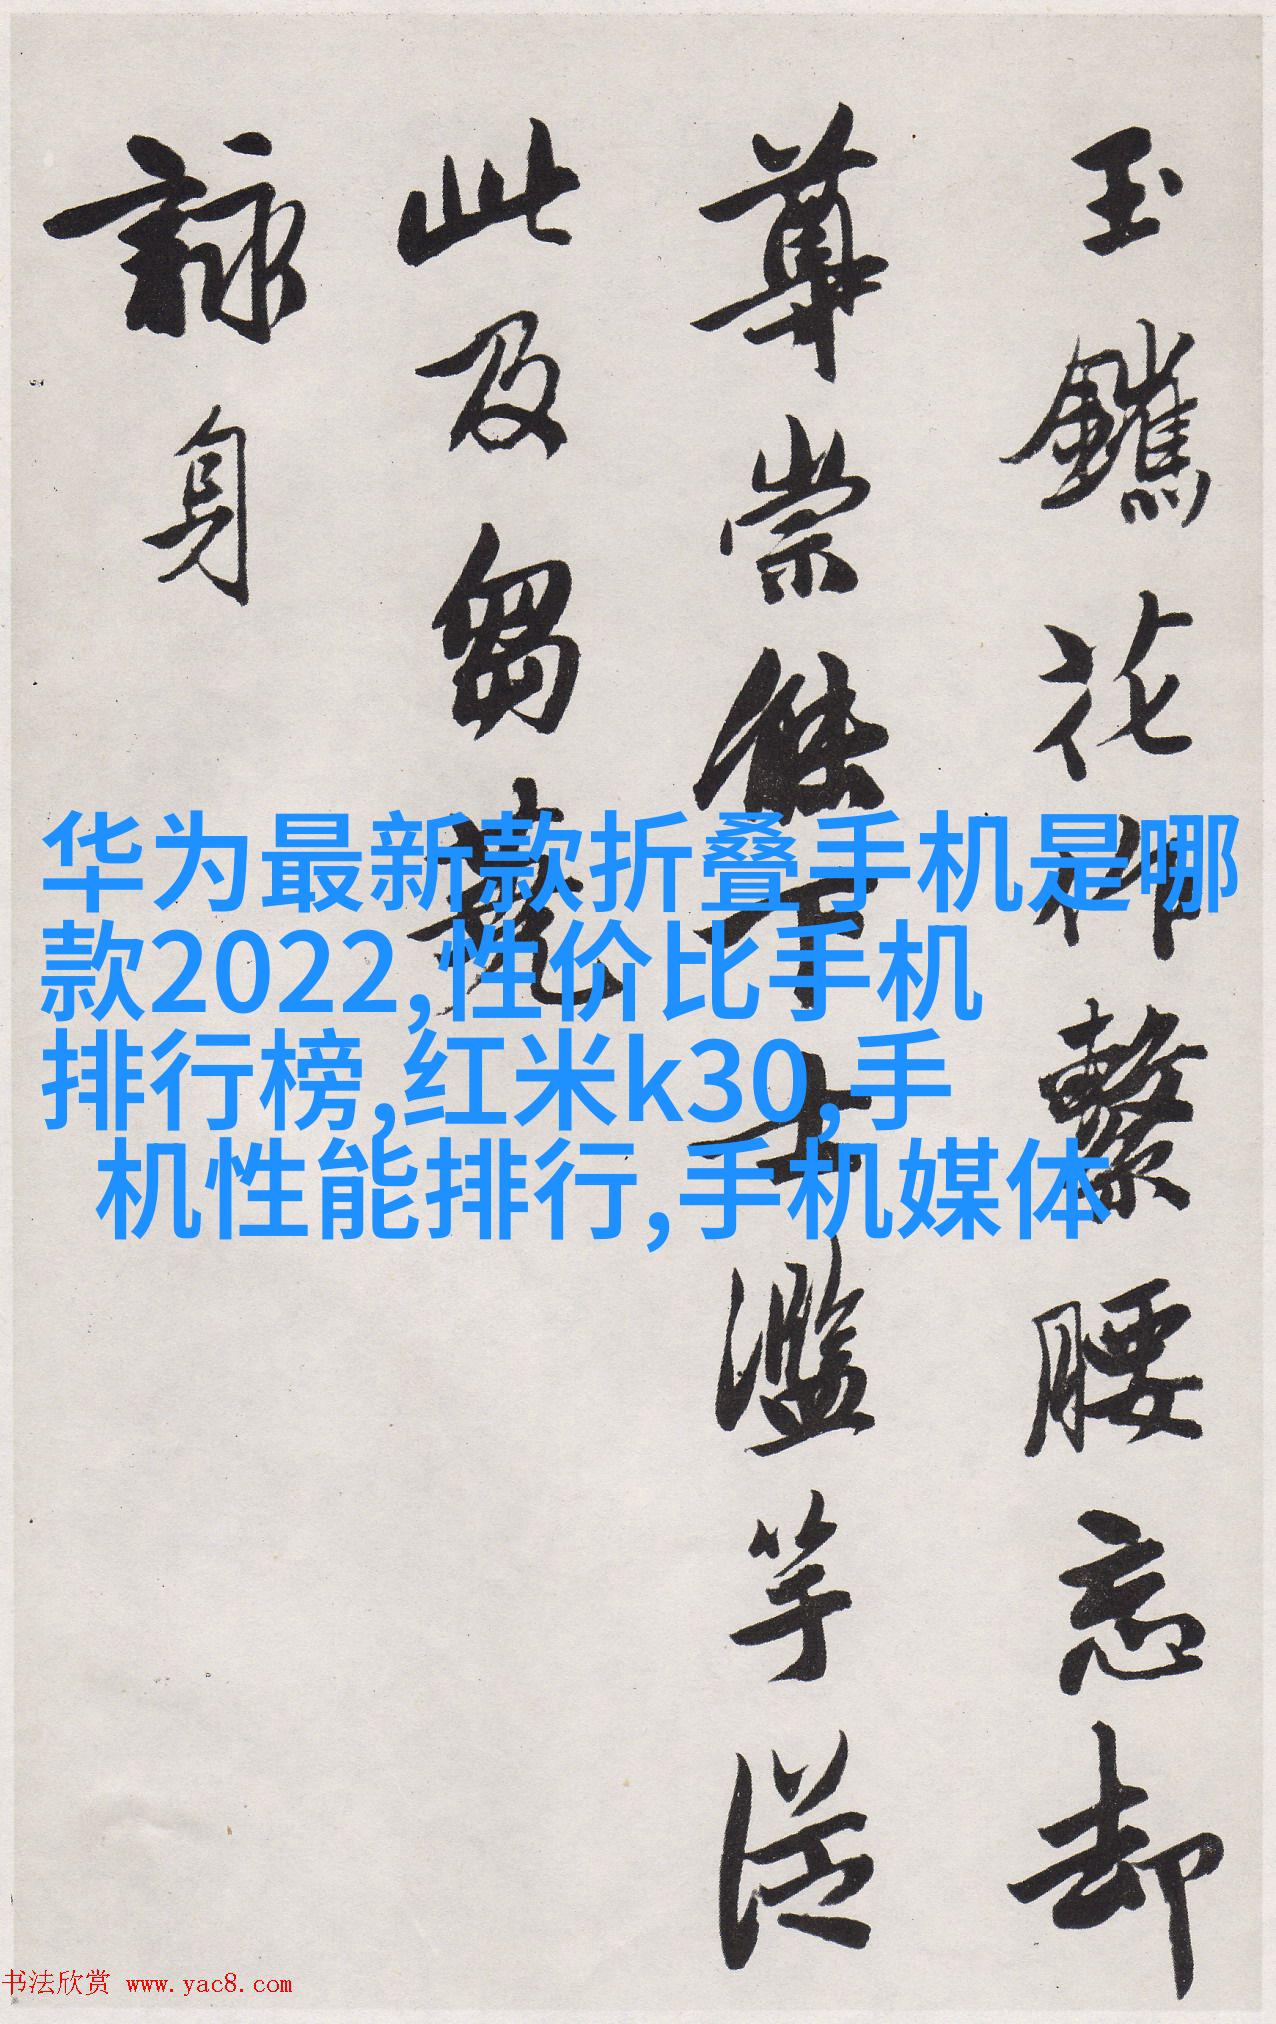 玉花繫腰忘却
崇下士濫竽從
此及芻蕘
身
华为最新款折叠手机是哪
款2022,性价比手机
排行榜,红米k30,手
机性能排行,手机媒体
书法欣赏 www.yac8.com